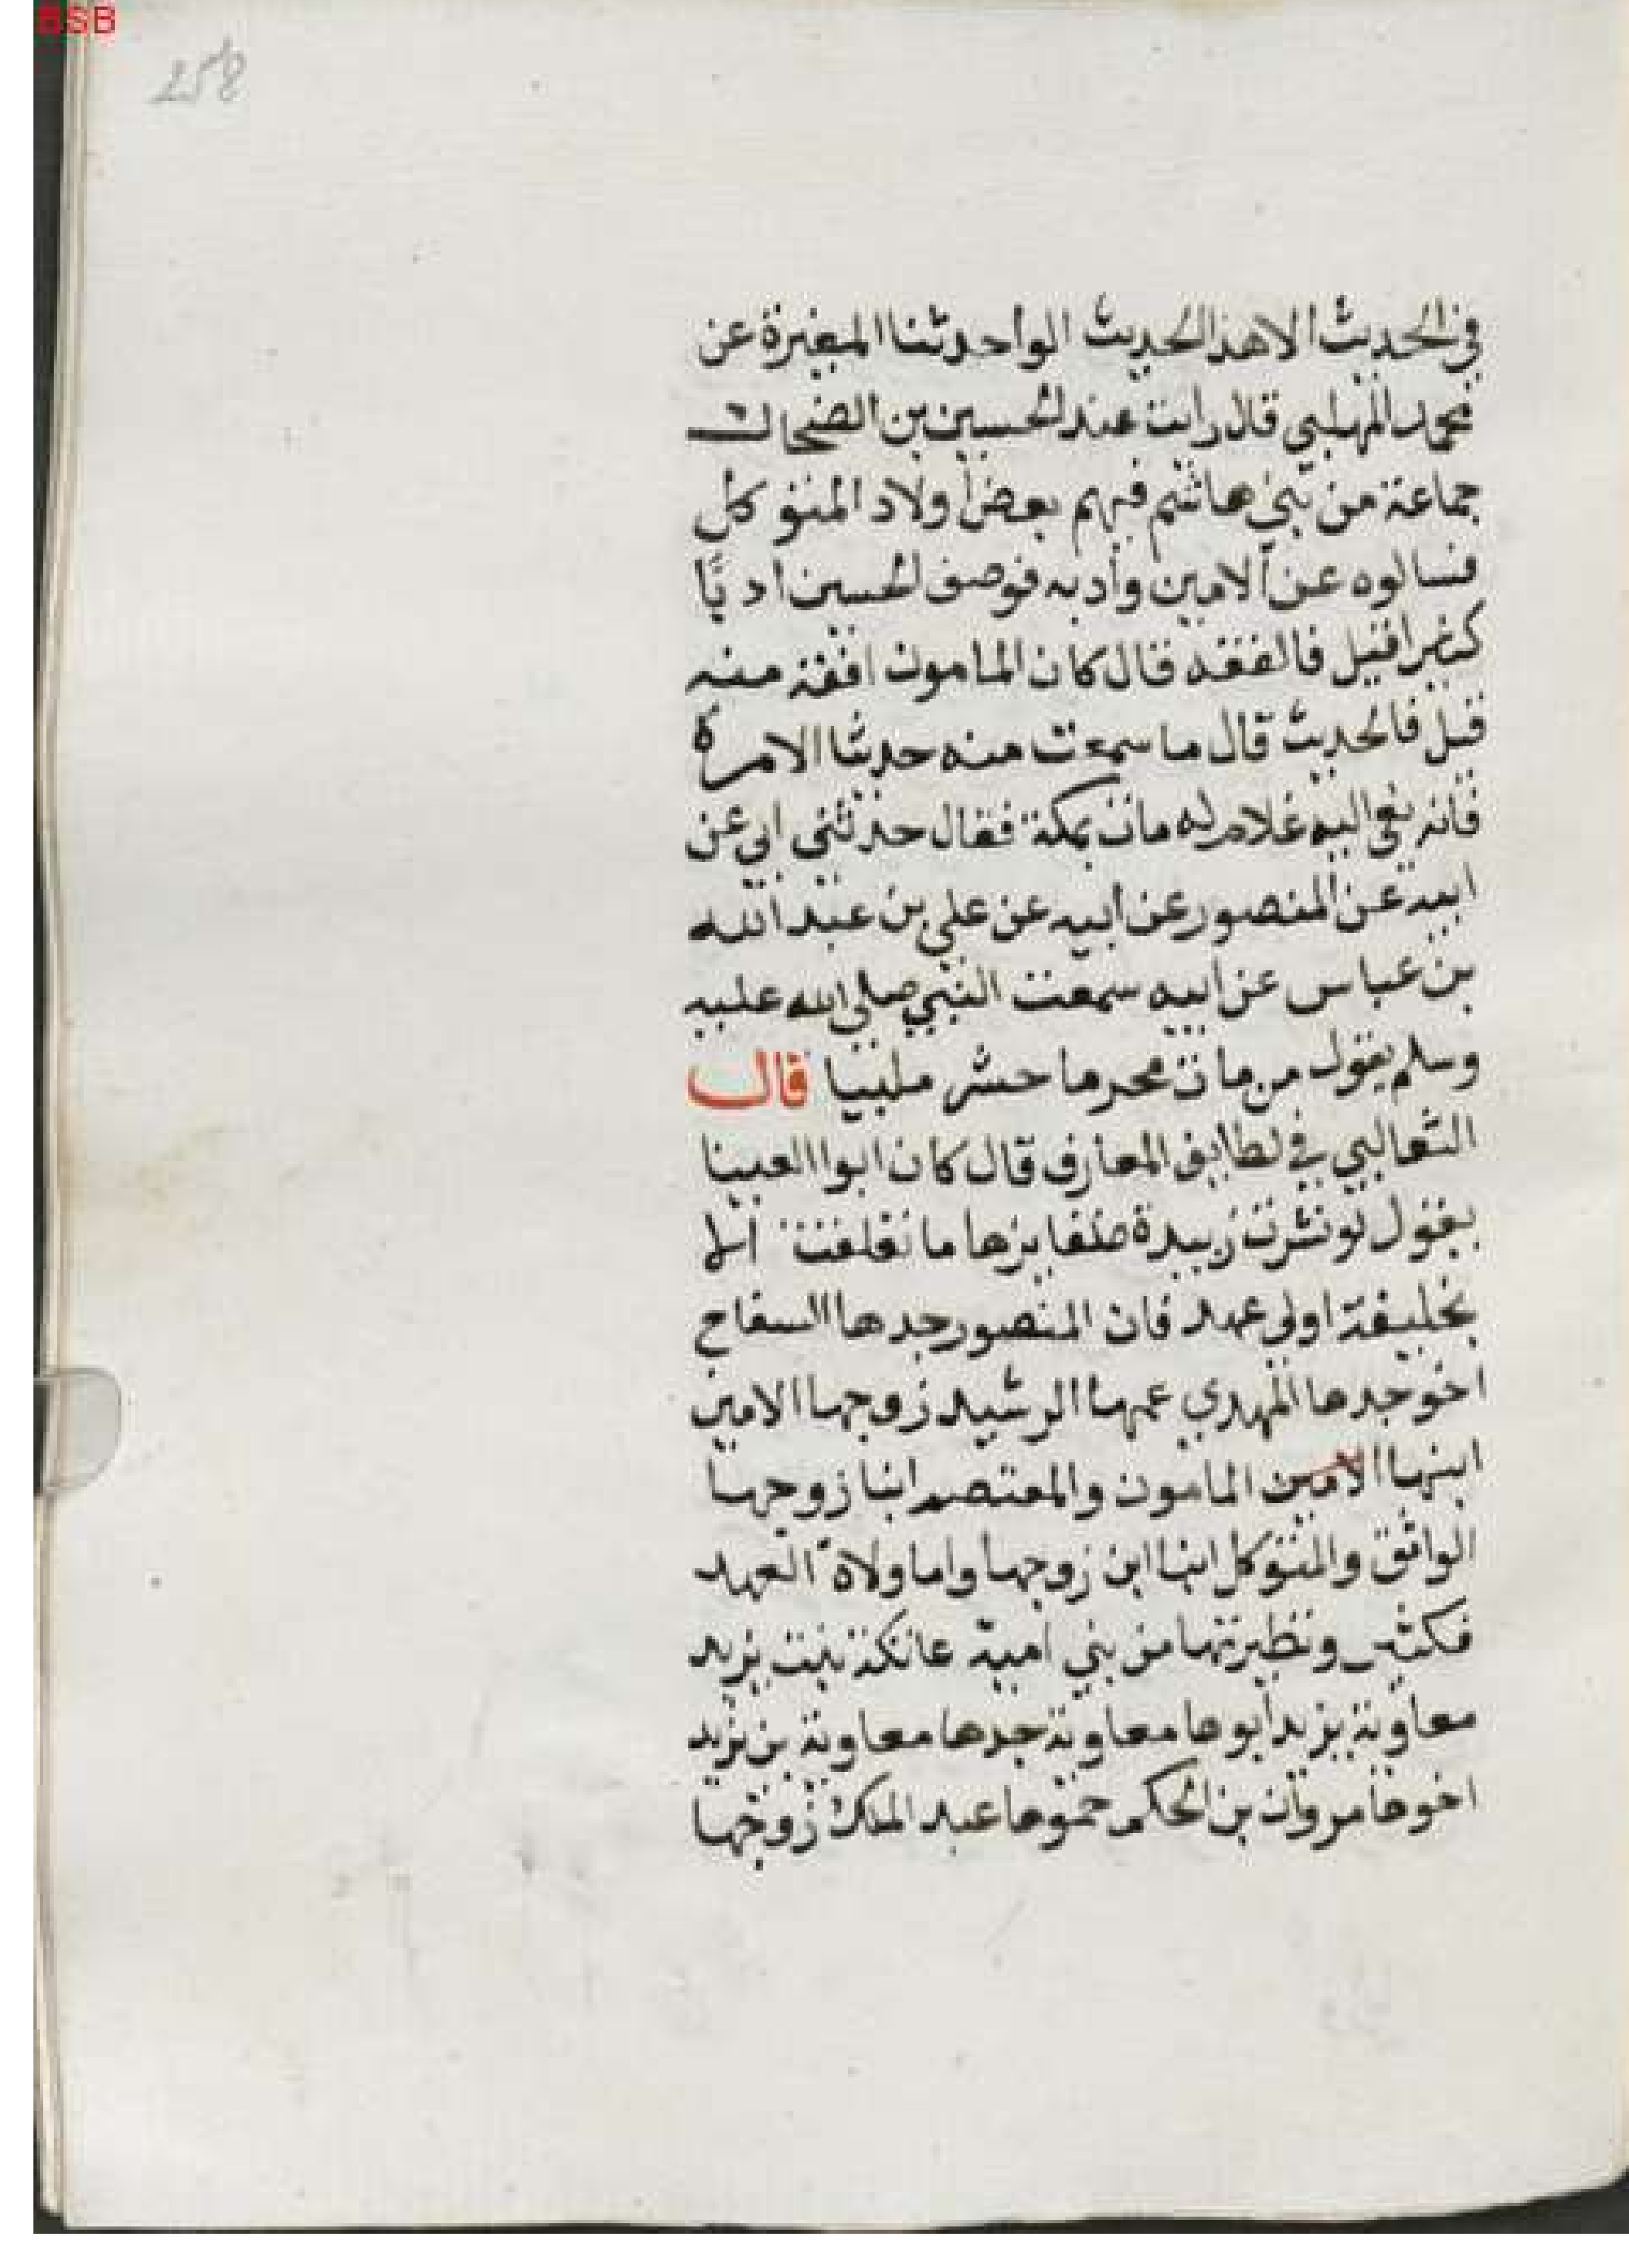 BSB
258
في الحديث الا هذا الحديث الواحد ثنا المغيرة عن
محمد المهلبي قال رايت عند الحسين بن الضحاك
جماعة من بني هاشم فيهم بعض اولاد المتوكل
فسالوه عن الامين وادبه فوصف الحسين ادبًا
كثيرا قيل فالفقه قال كان المامون افقه منه
قيل فالحديث قال ما سمعت منه حديثا الا مرة
فانه نعي اليه غلام له مات بمكة فقال حدثني ابي عن
ابيه عن المنصور عن ابيه عن علي بن عبد الله
بن عباس عن ابيه سمعت النبي صلى الله عليه
وسلم يقول من مات محرما حشر ملبيا قال
الثعالبي في لطايف المعارف قال كان ابوا العينا
يقول لو نشرت زبيدة ضفايرها ما تعلقت الا
بخليفة او لي عهد فان المنصور جدها السفاح
اخو جدها المهدي عمها الرشيد زوجها الامين
ابنها الامين المامون والمعتصم ابنا زوجها
الواثق والمتوكل ابنا ابن زوجها واما ولاة العهد
فكثير ونظيرتها من بني امية عاتكة بنت يزيد
معاوية يزيد ابوها معاوية جدها معاوية بن يزيد
اخوها مروان بن الحكم حموها عبد الملك زوجها